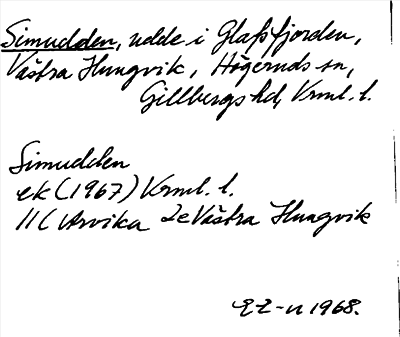 Simudden, udde i Glafsfjorden,
Västra Hungvik, Högeruds sn,
Gillbergs hd, Vrml. l.
Simudden
ek (1967) Vrml. l.
11C Arvika 2e Västra Hungvik
1968.